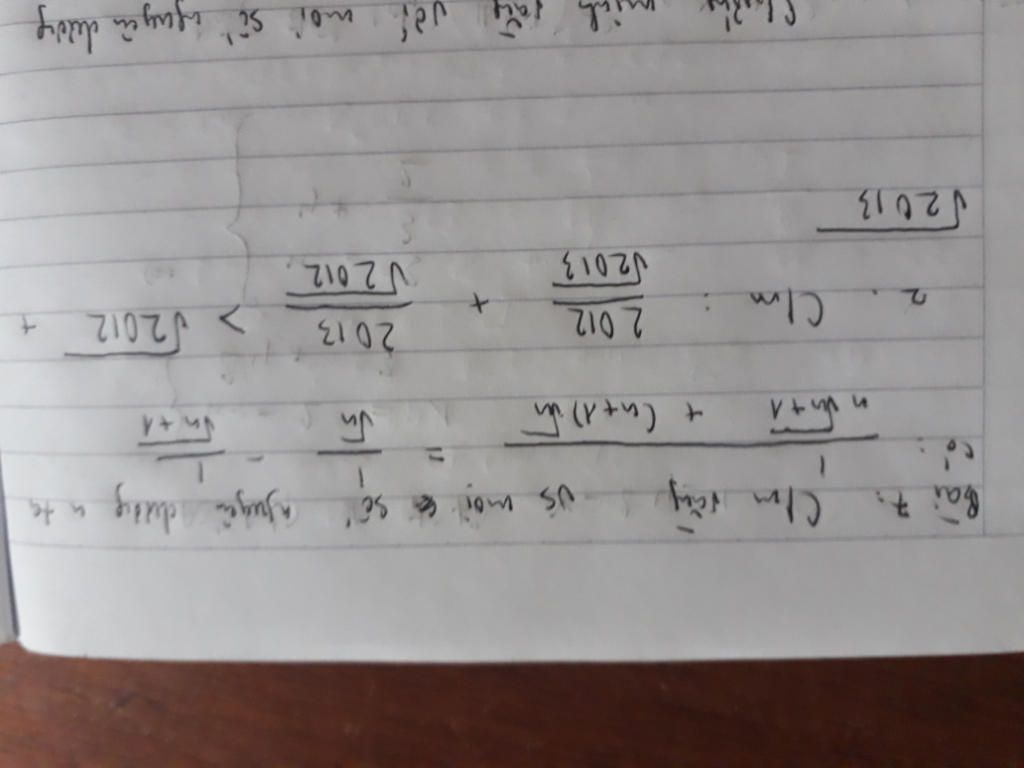 Bài 7: C/m rằng vs mọi số nguyên dương n ta
có: 1/(n√n+1 + (n+1)√n) = 1/√n - 1/√n+1
2. C/m: 2012/√2013 + 2013/√2012 > √2012 +
√2013
Chứng minh rằng với mọi số nguyên dương